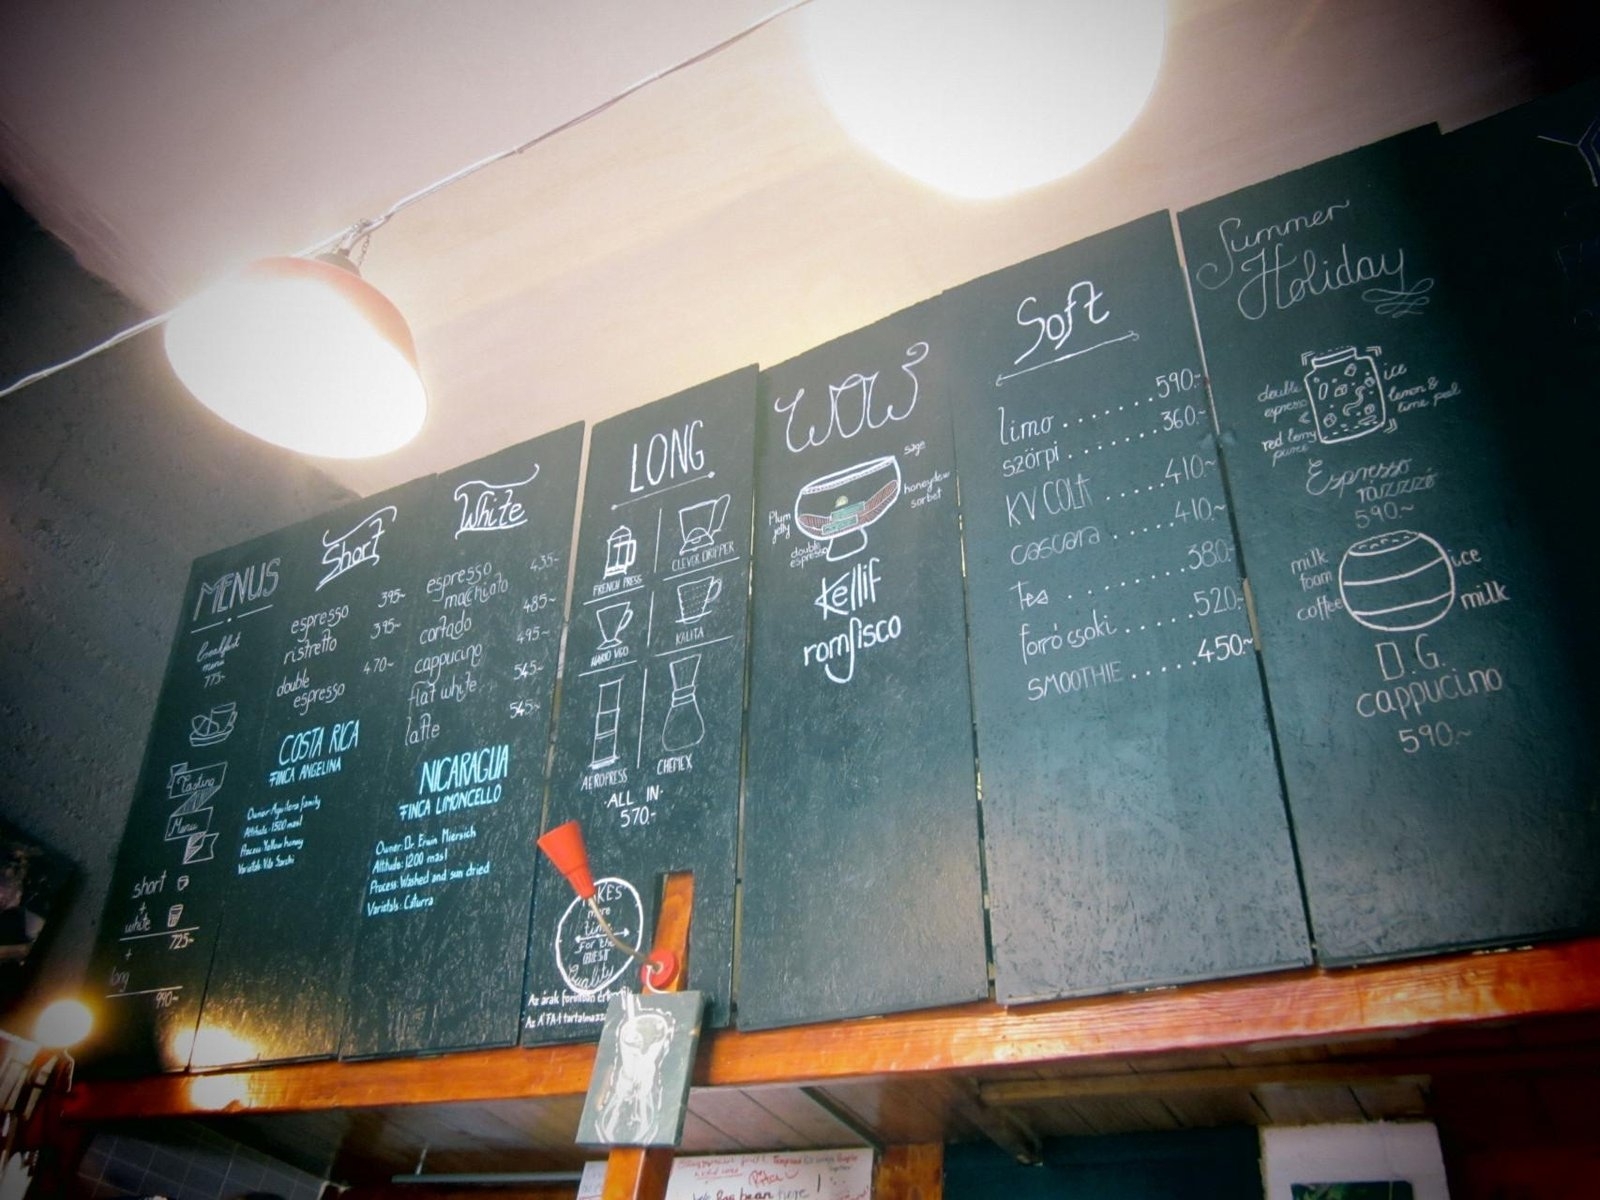 MENUS
breakfast
menü
775.-
Tasting
Menu
short
+
white
725~
+
long
990~
Short
espresso 395~
ristretto 395~
double
espresso 470~
COSTA RICA
FINCA ANGELINA
Owner: Aguilera family
Altitude: 1500 masl
Process: Yellow honey
Varietals: Villa Sarchi
White
espresso
macchiato 435~
cortado 485~
cappucino 495~
flat white 545~
latte 545~
NICARAGUA
FINCA LIMONCELLO
Owner: Dr. Erwin Miersich
Altitude: 1200 masl
Process: Washed and sun dried
Varietals: Caturra
LONG
FRENCH PRESS
CLEVER DRIPPER
HARIO V60
KALITA
AEROPRESS
CHEMEX
·ALL IN·
570.-
more
time
for the
BEST
Quality
Az árak forintban
Az ÁFA-t
WOW
sage
honeydew
sorbet
Plum
jelly
double
espresso
Kellif
romfisco
Soft
limo . . . . . . . 590.-
szörpi . . . . . . 360.-
KV COLA . . . . . 410~
cascara . . . . . 410.~
Tea . . . . . . . . 380.~
forró csoki . . . . . 520.~
SMOOTHIE . . . . 450.~
Summer
Holiday
double
espresso
ice
lemon &
lime peel
red berry
püré
Espresso
razzzé
590~
milk
foam
coffee
ice
milk
D.G.
cappucino
590.~